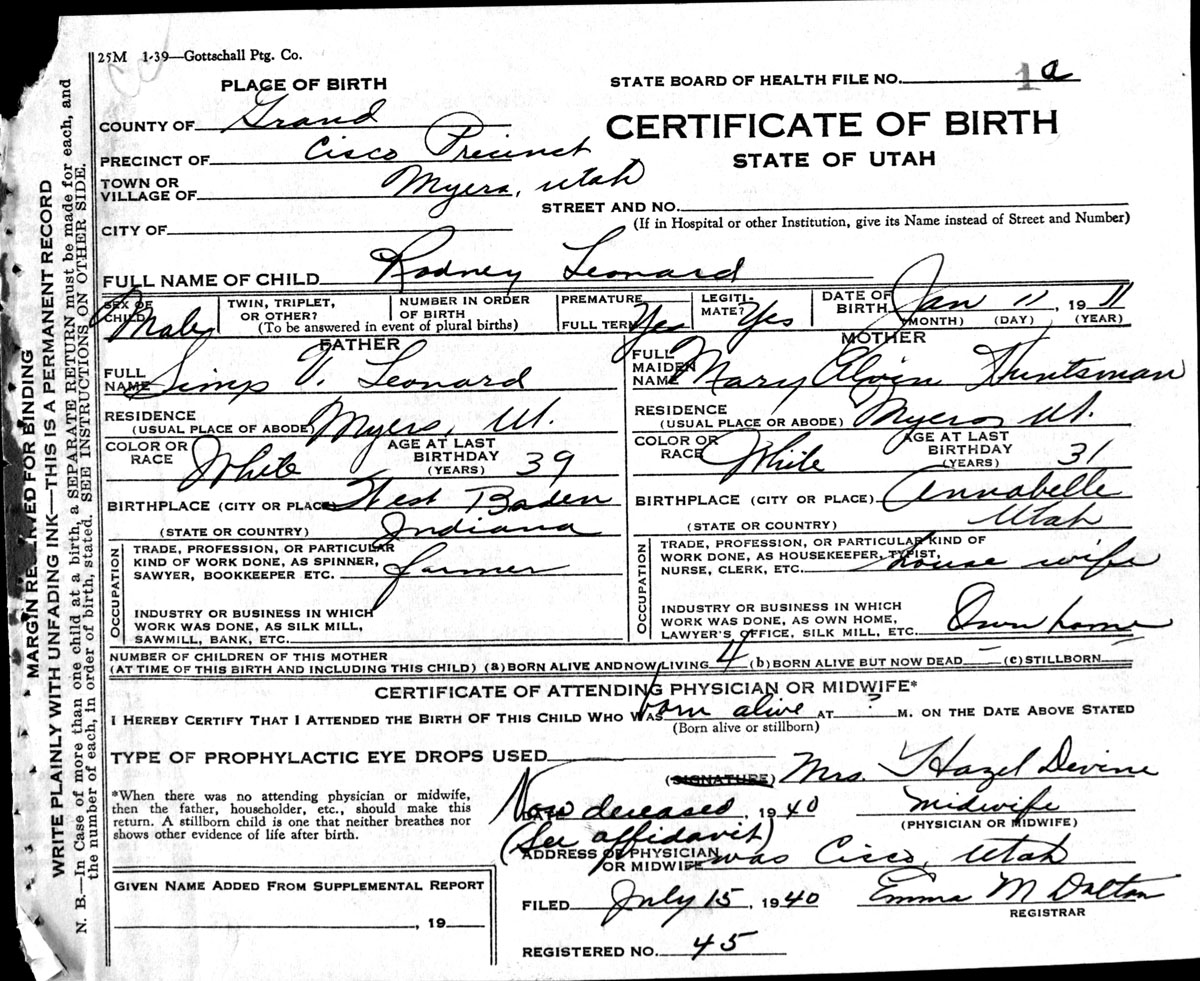 25M 1-39—Gottschall Ptg. Co.
PLACE OF BIRTH
STATE BOARD OF HEALTH FILE NO. 1 a
COUNTY OF Grand
CERTIFICATE OF BIRTH
PRECINCT OF Cisco Precinct
STATE OF UTAH
TOWN OR
VILLAGE OF Myers, Utah
STREET AND NO.
(If in Hospital or other Institution, give its Name instead of Street and Number)
CITY OF
FULL NAME OF CHILD Rodney Leonard
SEX OF CHILD Male
TWIN, TRIPLET, OR OTHER?
NUMBER IN ORDER OF BIRTH
(To be answered in event of plural births)
PREMATURE
FULL TERM Yes
LEGITI-
MATE? Yes
DATE OF BIRTH Jan 11, 1911
(MONTH) (DAY) (YEAR)
FATHER
FULL NAME Simp V. Leonard
RESIDENCE
(USUAL PLACE OF ABODE) Myers, Ut.
COLOR OR RACE White
AGE AT LAST BIRTHDAY (YEARS) 39
BIRTHPLACE (CITY OR PLACE) West Baden
(STATE OR COUNTRY) Indiana
OCCUPATION
TRADE, PROFESSION, OR PARTICULAR
KIND OF WORK DONE, AS SPINNER,
SAWYER, BOOKKEEPER ETC. farmer
INDUSTRY OR BUSINESS IN WHICH
WORK WAS DONE, AS SILK MILL,
SAWMILL, BANK, ETC.
MOTHER
FULL MAIDEN NAME Mary Elvin Huntsman
RESIDENCE
(USUAL PLACE OR ABODE) Myers, Ut.
COLOR OR RACE White
AGE AT LAST BIRTHDAY (YEARS) 31
BIRTHPLACE (CITY OR PLACE) Annabelle
(STATE OR COUNTRY) Utah
OCCUPATION
TRADE, PROFESSION, OR PARTICULAR KIND OF
WORK DONE, AS HOUSEKEEPER, TYPIST,
NURSE, CLERK, ETC. house wife
INDUSTRY OR BUSINESS IN WHICH
WORK WAS DONE, AS OWN HOME,
LAWYER'S OFFICE, SILK MILL, ETC. Own home
NUMBER OF CHILDREN OF THIS MOTHER
(AT TIME OF THIS BIRTH AND INCLUDING THIS CHILD) (a) BORN ALIVE AND NOW LIVING 4 (b) BORN ALIVE BUT NOW DEAD – (c) STILLBORN –
CERTIFICATE OF ATTENDING PHYSICIAN OR MIDWIFE*
I HEREBY CERTIFY THAT I ATTENDED THE BIRTH OF THIS CHILD WHO WAS born alive AT ? M. ON THE DATE ABOVE STATED
(Born alive or stillborn)
TYPE OF PROPHYLACTIC EYE DROPS USED
(SIGNATURE) Mrs. Hazel Devine
*When there was no attending physician or midwife,
then the father, householder, etc., should make this
return. A stillborn child is one that neither breathes nor
shows other evidence of life after birth.
DATE Now deceased, 1940 midwife
(PHYSICIAN OR MIDWIFE)
(See affidavit)
ADDRESS OF PHYSICIAN
OR MIDWIFE was Cisco, Utah
GIVEN NAME ADDED FROM SUPPLEMENTAL REPORT
, 19
FILED July 15, 1940 Emma M Dalton
REGISTRAR
REGISTERED NO. 45
MARGIN RESERVED FOR BINDING
WRITE PLAINLY WITH UNFADING INK—THIS IS A PERMANENT RECORD
N. B.—In Case of more than one child at a birth, a SEPARATE RETURN must be made for each, and
the number of each, in order of birth, stated. SEE INSTRUCTIONS ON OTHER SIDE.